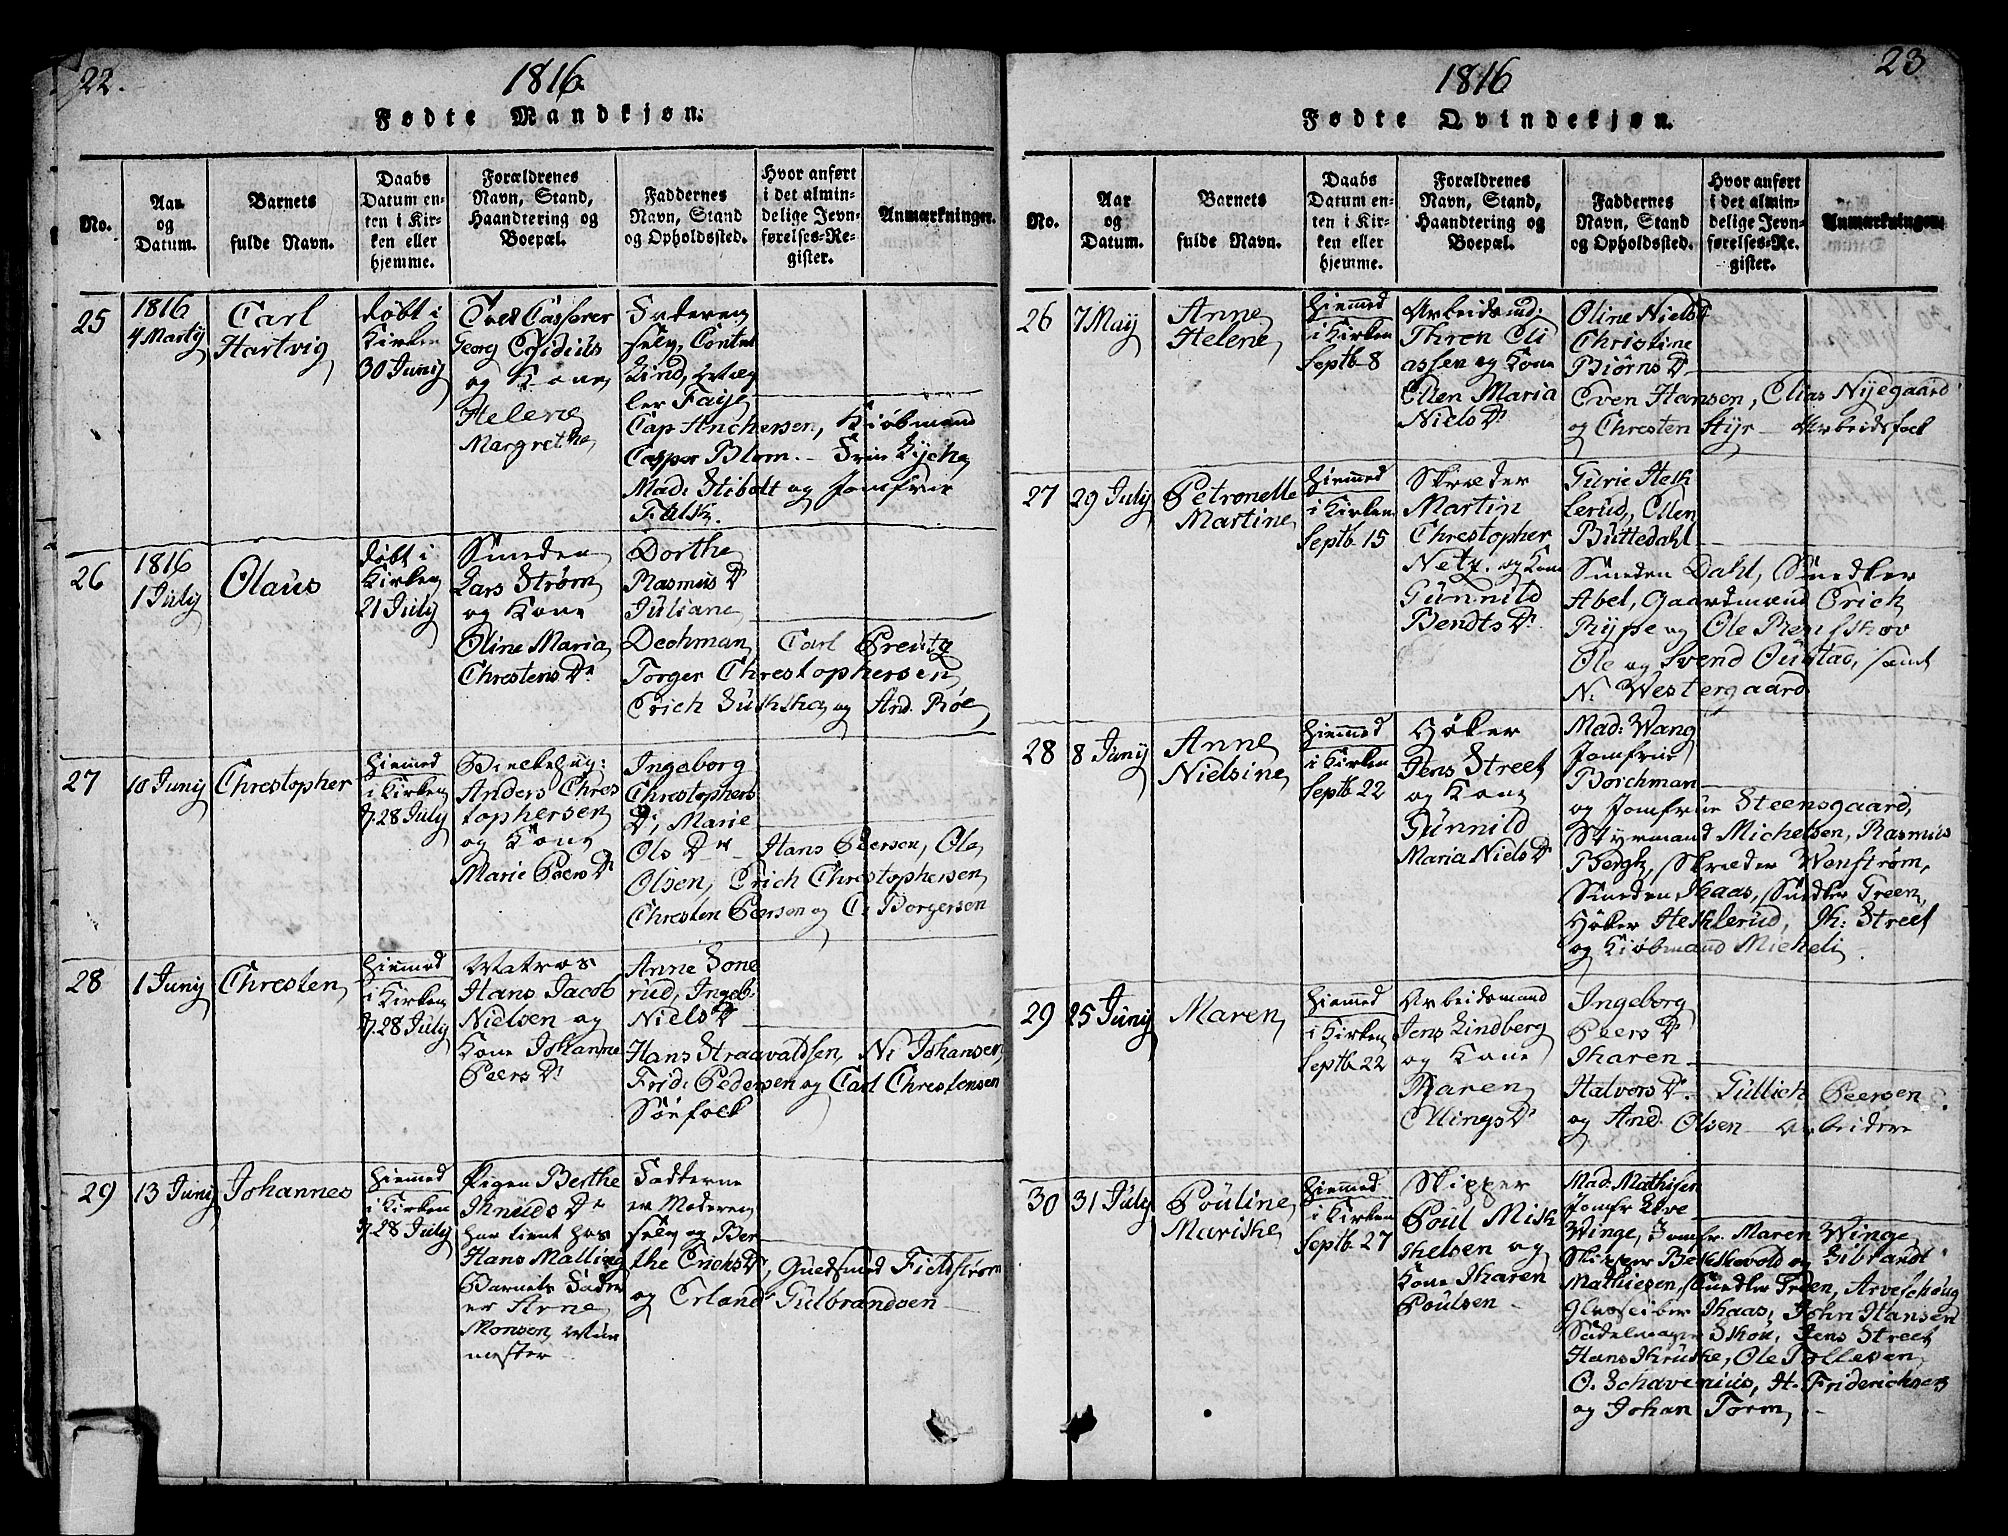 22.
1816.
Fødte Mandkjøn.
No.
Aar
og
Datum.
Barnets
fulde Navn.
Daabs
Datum en-
ten i Kir-
ken eller
hjemme.
Forældrenes
Navn, Stand,
Haandtering og
Boepæl.
Faddernes
Navn, Stand
og Opholdssted.
Hvor anført
i det almin-
delige Jevn-
førelses-Re-
gister.
Anmærkninger.
25
1816
4 Martij
Carl
Hartvig
døbt i
Kirken
30 Junij
Casserer
Georg
og Kone
Helene
Margrethe
Faderen
selv, Contr
Lind,
ler Faye
Cap Anchersen, Kiøbmand
Casper Blom. Frue Lÿche
Mad: Stibolt og Jomfrue
Falsk.
26
1816
1 July
Olaus
døbt i
Kirken
21 July
Smeden
Lars Strøm
og Kone
Oline Maria
Christens Dr
Dorthe
Rasmus Dr
Juliane
Dechman, Carl
Torger Chrestophersen
Erich og And. Røe
27
10 Junij
Chrestopher
Hiemmed
i Kirken
d. 28 July
Anders Chres
tophersen
og Kone
Marie Peers Dr
Ingeborg
Chrestophers
Dr, Marie
Ols Dr Hans Peersen, Ole
Olsen, Erich Chrestophersen
Chresten Persen og C. Borgersen
28
1 Junij
Chresten
Hiemmed
i Kirken
d. 28 July
Matros
Hans Jacob
Nielsen og
Kone Johanne
Peers Dr
Anne Sone
rud, Ingeb:
Niels Dr
Hans Straavaldsen, N. Johansen
Frid: Pedersen og Carl Chrestensen
Søefolk
29
13 Junij
Johannes
Hiemmed
i Kirken
d. 28 July
Pigen Berthe
Knuds Dr
har tient hos
Hans Malling
Barnets Fader
er Arne
Monsen, Muur
mester
Fadderne
er Moderen
selv og Ber
the Erichs Dr, Guldsmed Fieldstrøm
og Erland Gulbrandsen
23
1816
Fødte Qvindekjøn.
No.
Aar
og
Datum.
Barnets
fulde Navn.
Daabs
Datum en-
ten i Kir-
ken eller
hjemme.
Forældrenes
Navn, Stand,
Haandtering og
Boepæl.
Faddernes
Navn, Stand
og Opholdssted.
Hvor anført
i det almin-
delige Jevn-
førelses-Re-
gister.
Anmærkninger.
26
7 May
Anne
Helene
Hiemmed
i Kirken
Septb 8
Arbeidsmd:
Thron Eli
assen og Kone
Ellen Maria
Niels Dr
Oline Niels Dr
Christine
Biørns Dr
Even Hansen, Elias Nyegaard
og Chresten Styr Arbeidsfolk
27
29 July
Petronelle
Martine
Hiemmed
i Kirken
Septb 15
Skræder
Martin
Chrestopher
Netz. og Kone
Gunnild
Bendts Dr
Gurie Hesk
lerud, Ellen
Buttedahl
Smeden Dahl, Snedker
Abel, Gaardmænd Erich
og Ole
Ole og Svend samt
N. Westergaard
28
8 Junij
Anne
Nielsine
Hiemmed
i Kirken
Septb 22
Høker
Jens Street
og Kone
Gunnild
Maria Niels Dr
Mad: Wang
Jomfrue
Borchman
og Jomfrue Steensgaard,
Styrmand Michelsen, Rasmus
Bergh, Skræder Wenstrøm,
Smeden Kaas, Snedker Green,
Høker Hesklerud, Jh: Street
og Kiøbmand Micheli
29
25 Junij
Maren
Hiemmed
i Kirken
Septb 22
Arbeidsmand
Jens Lindberg
og Kone
Karen
Ellings Dr
Ingeborg
Peers Dr
Karen
Halvors Dr. Gullich Peersen
og And. Olsen Arbeidere
30
31 July
Pouline
Mariske
Hiemmed
i Kirken
Septb 27
Skipper
Poul Mik
kelsen og
Kone Karen
Poulsen
Mad. Mathisen
Jomfr
Winge, Jomfr. Maren Winge
Skipper og Gibrandt
Mathiesen, Snedker Green, Arveschoug
Kaas, John Hansen
Sadelmager Skou, Jens Street
Hans Kruske, Ole Tollesen
O. Schavenius, H. Friderichsen
og Johan Torm